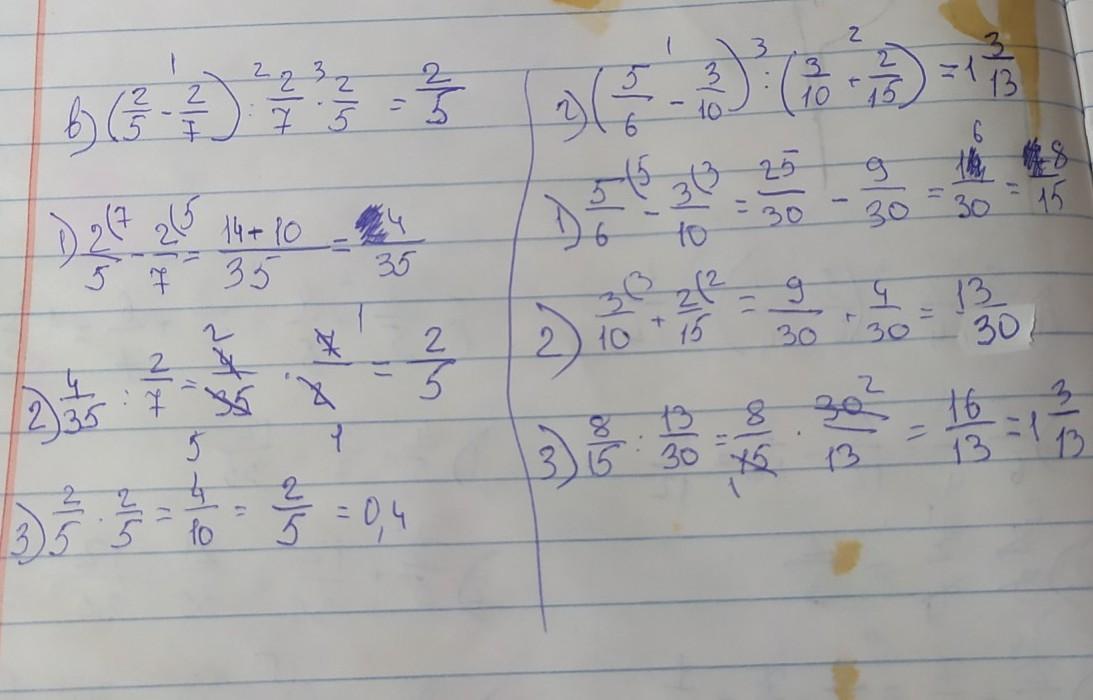 в) (2/5 - 2/7) : 2/7 · 2/5 = 2/5
1 2 3
1) 2(7/5 - 2(5/7 = 14+10/35 = 4/35
2) 4/35 : 2/7 = 4/35 · 7/2 = 2/5
2 1
5 1
3) 2/5 · 2/5 = 4/10 = 2/5 = 0,4
г) (5/6 - 3/10) : (3/10 + 2/15) = 1 3/13
1 3 2
1) 5(5/6 - 3(3/10 = 25/30 - 9/30 = 16/30 = 8/15
2) 3(3/10 + 2(2/15 = 9/30 + 4/30 = 13/30
3) 8/15 : 13/30 = 8/15 · 30/13 = 16/13 = 1 3/13
2
1